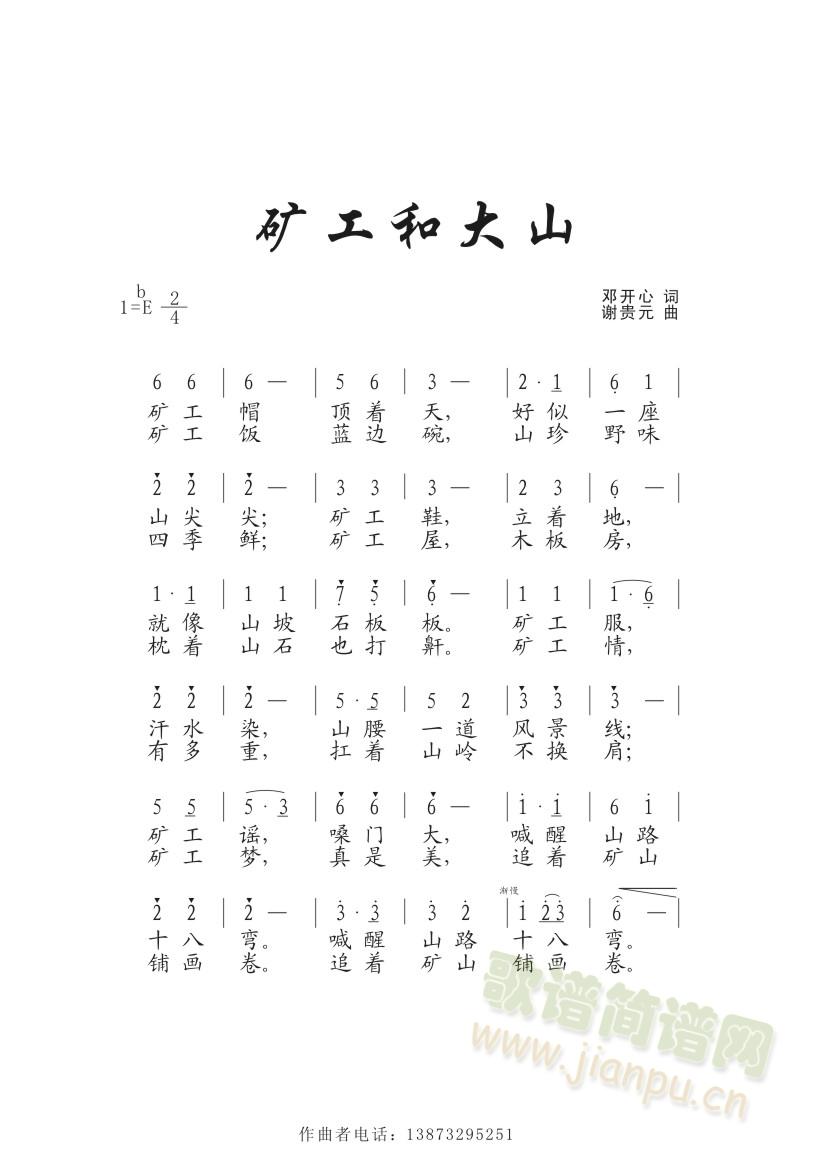 矿工和大山
1=bE 2/4
邓开心 词
谢贵元 曲
6 6 | 6 — | 5 6 | 3 — | 2 · 1 | 6 1 |
矿 工 帽 顶 着 天, 好 似 一 座
矿 工 饭 蓝 边 碗, 山 珍 野 味
2 2 | 2 — | 3 3 | 3 — | 2 3 | 6 — |
山 尖 尖; 矿 工 鞋, 立 着 地,
四 季 鲜; 矿 工 屋, 木 板 房,
1 · 1 | 1 1 | 7 5 | 6 — | 1 1 | 1 · 6 |
就 像 山 坡 石 板 板。 矿 工 服,
枕 着 山 石 也 打 鼾。 矿 工 情,
2 2 | 2 — | 5 · 5 | 5 2 | 3 3 | 3 — |
汗 水 染, 山 腰 一 道 风 景 线;
有 多 重, 扛 着 山 岭 不 换 肩;
5 5 | 5 · 3 | 6 6 | 6 — | 1 · 1 | 6 1 |
矿 工 谣, 嗓 门 大, 喊 醒 山 路
矿 工 梦, 真 是 美, 追 着 矿 山
渐慢
2 2 | 2 — | 3 · 3 | 3 2 | 1 2 3 | 6 — |
十 八 弯。 喊 醒 山 路 十 八 弯。
铺 画 卷。 追 着 矿 山 铺 画 卷。
歌谱简谱网
www.jianpu.cn
作曲者电话：13873295251